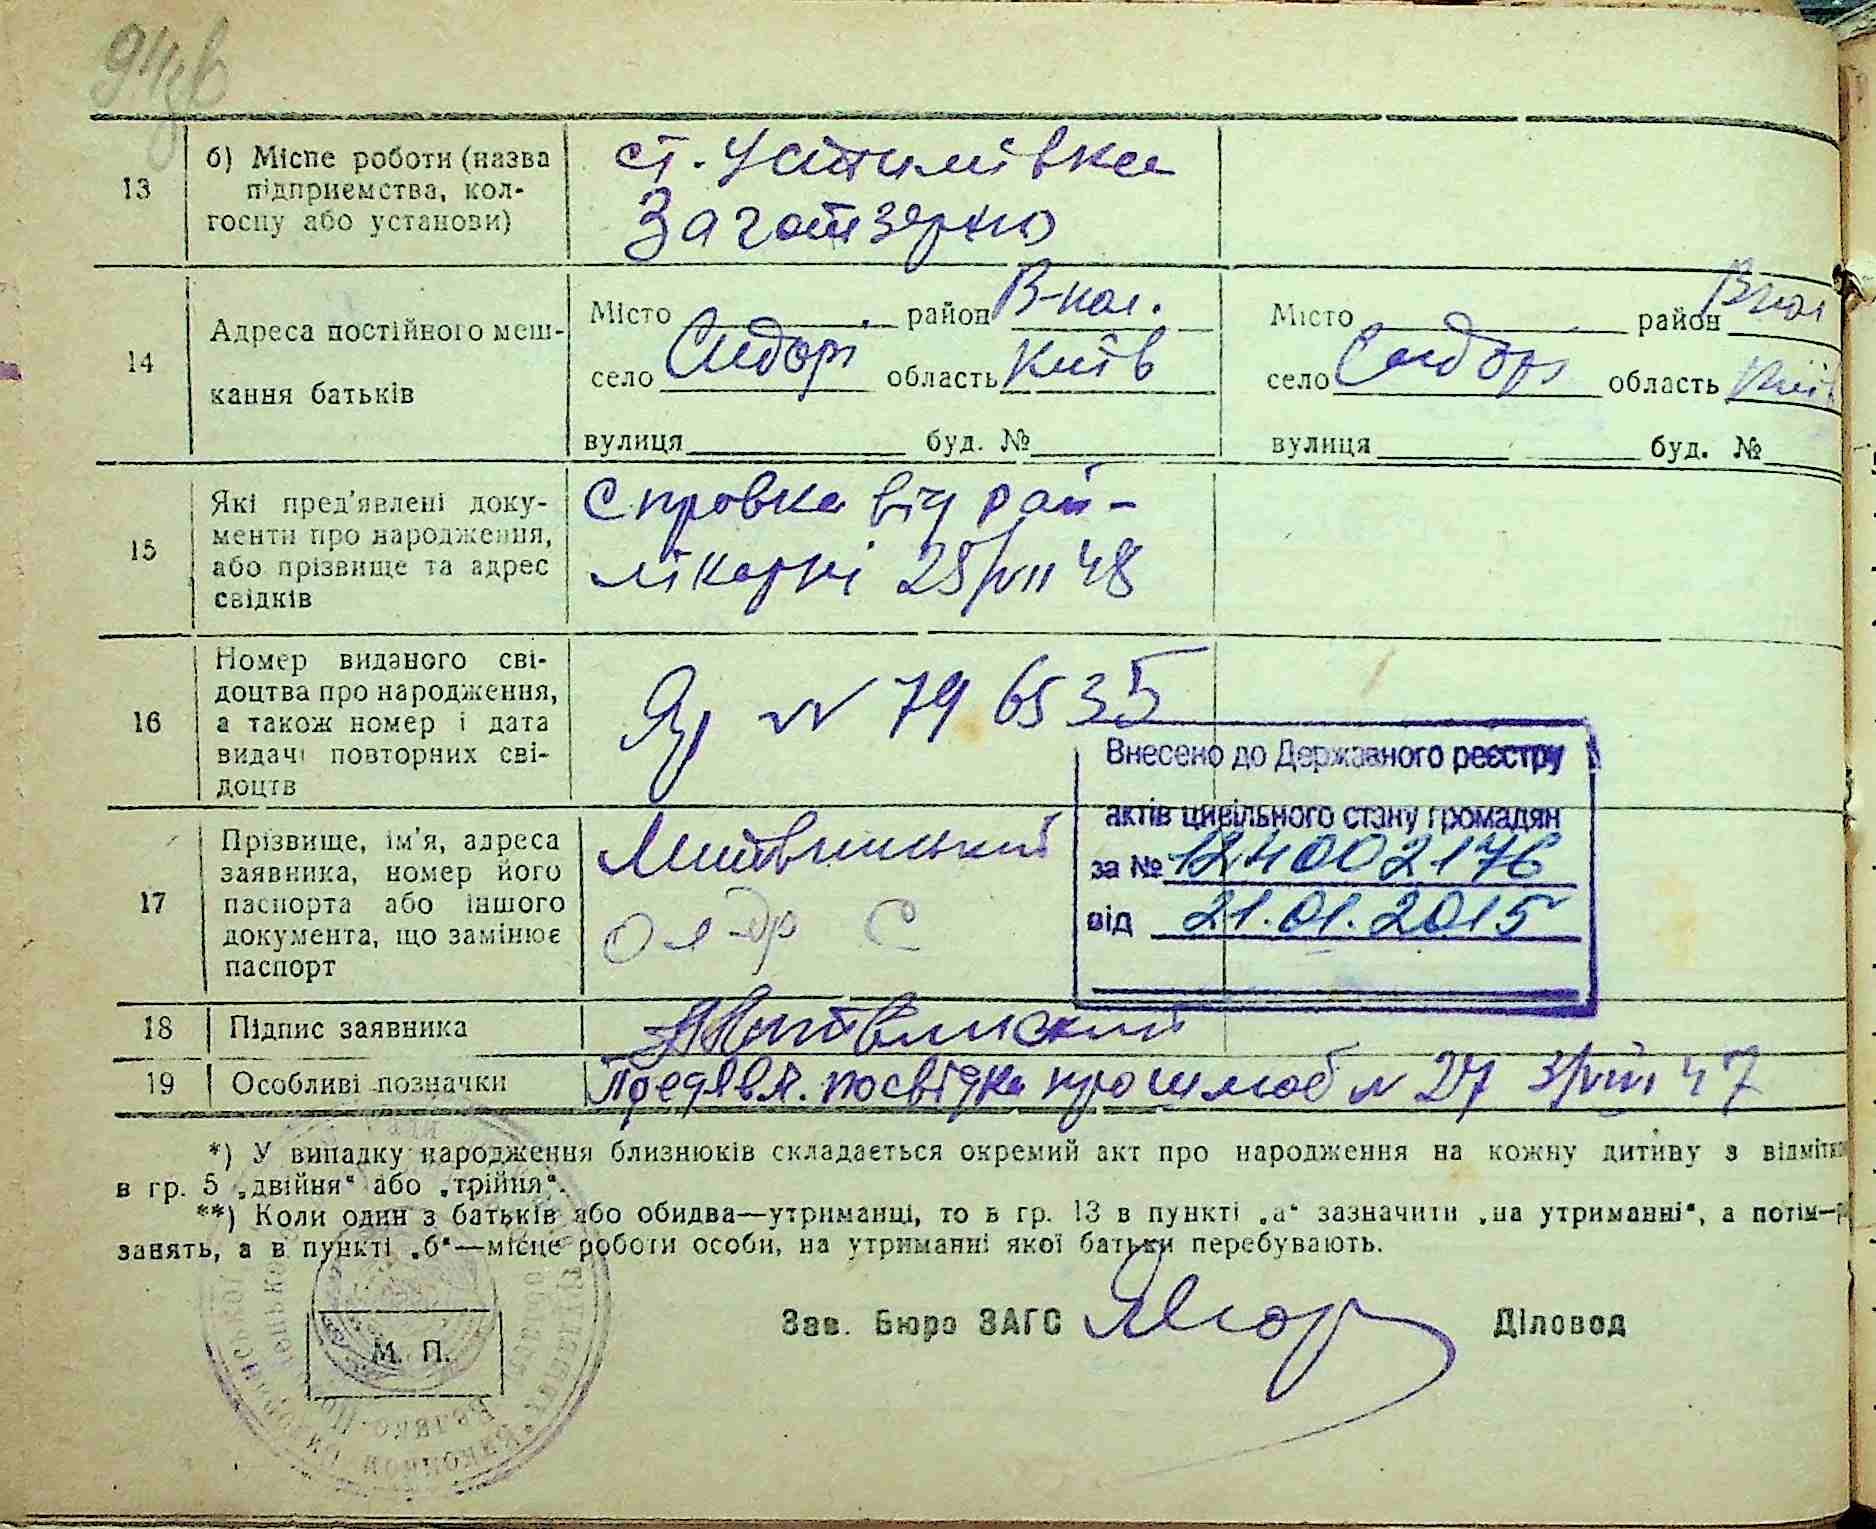 13
б) Місце роботи (назва
підприємства, кол-
госпу або установи)
ст. Устимівка
Заготзерно
14
Адреса постійного меш-
кання батьків
Місто район В-пол.
село Сидорі область Київ
вулиця буд. №
Місто район Впол
село Сидорі область Київ
вулиця буд. №
15
Які пред'явлені доку-
менти про народження,
або прізвище та адрес
свідків
Справка від рай-
лікарні 25/VII 48
16
Номер виданого сві-
доцтва про народження,
а також номер і дата
видачі повторних сві-
доцтв
№ 796535
Внесено до Державного реєстру
актів цивільного стану громадян
за № 124002176
від 21.01.2015
17
Прізвище, ім'я, адреса
заявника, номер його
паспорта або іншого
документа, що замінює
паспорт
Литвинський
18 Підпис заявника
19 Особливі позначки
Предявл. посвідка про шлюб № 27 3/VIII 47
*) У випадку народження близнюків складається окремий акт про народження на кожну дитину з відмітк
в гр. 5 „двійня" або „трійня".
**) Коли один з батьків або обидва—утриманці, то в гр. 13 в пункті „а" зазначити „на утриманні", а потім—р
занять, а в пункті „б"—місце роботи особи, на утриманні якої батьки перебувають.
Зав. Бюро ЗАГС Діловод
М. П.